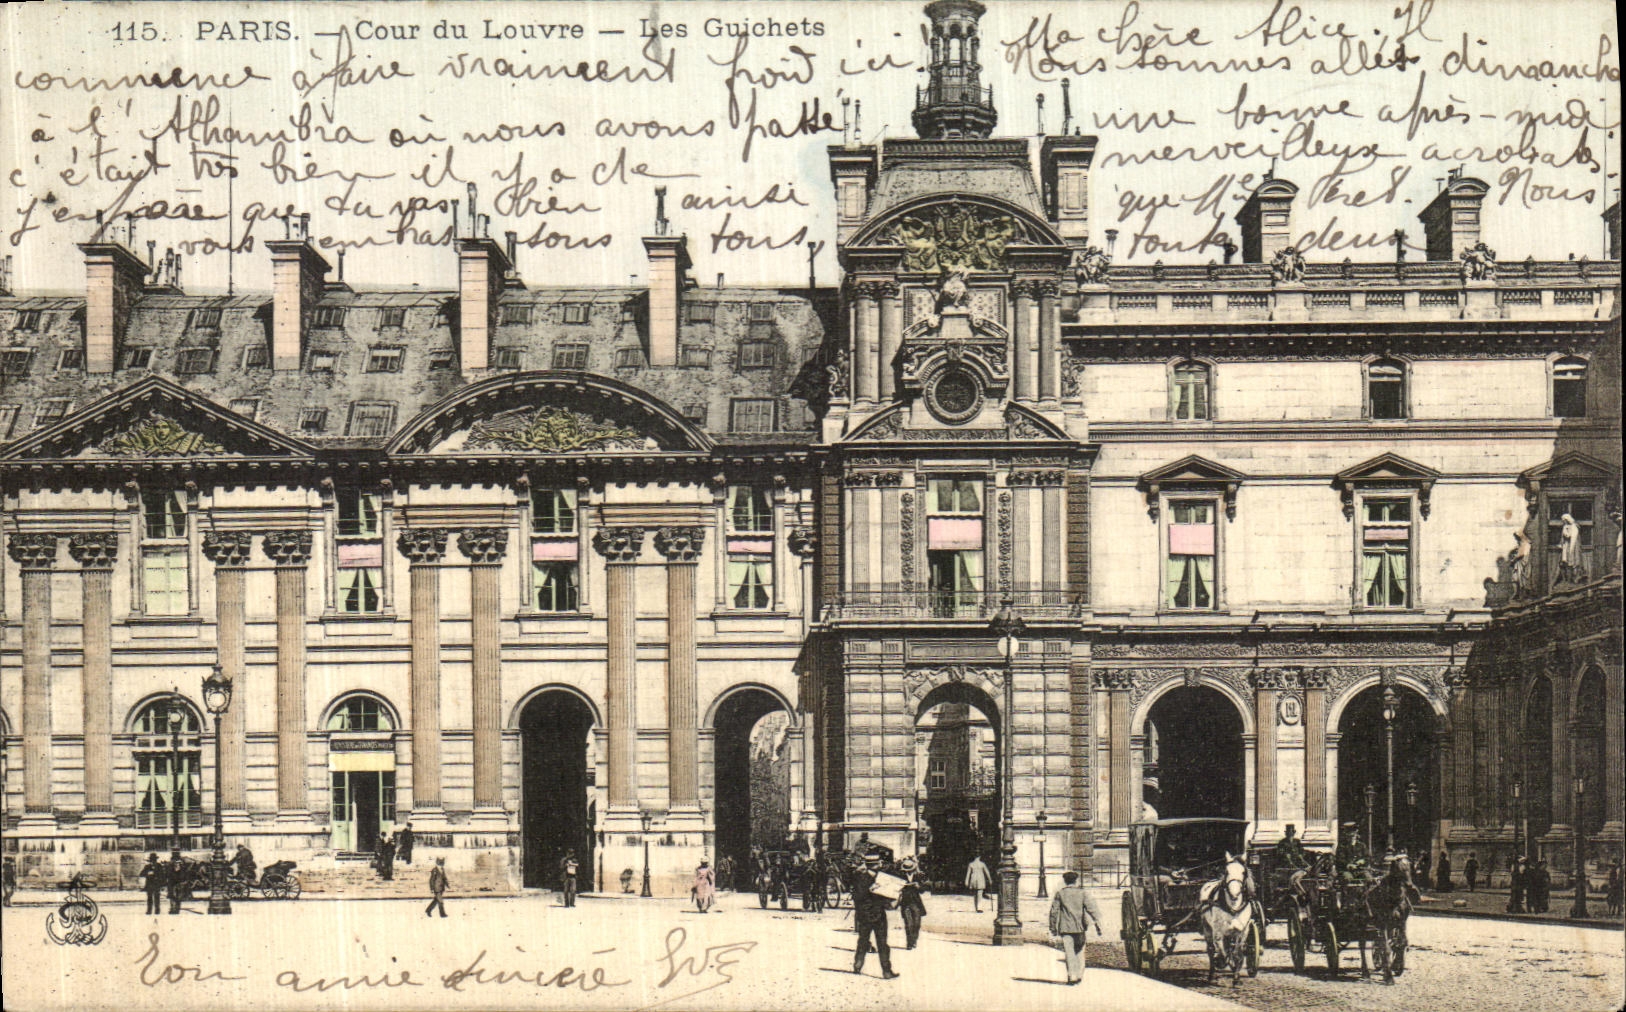 115. PARIS. — Cour du Louvre — Les Guichets
Ma chère Alice. Il
commence à faire vraiment froid ici!
Nous sommes allés dimanche
à l'Alhambra où nous avons passé
une bonne après-midi
c'était très bien il y a de
merveilleux acrobates
j'espère que tu vas bien ainsi
que Mlle Nous
vous embrassons tous,
toutes deux
Ton amie sincère